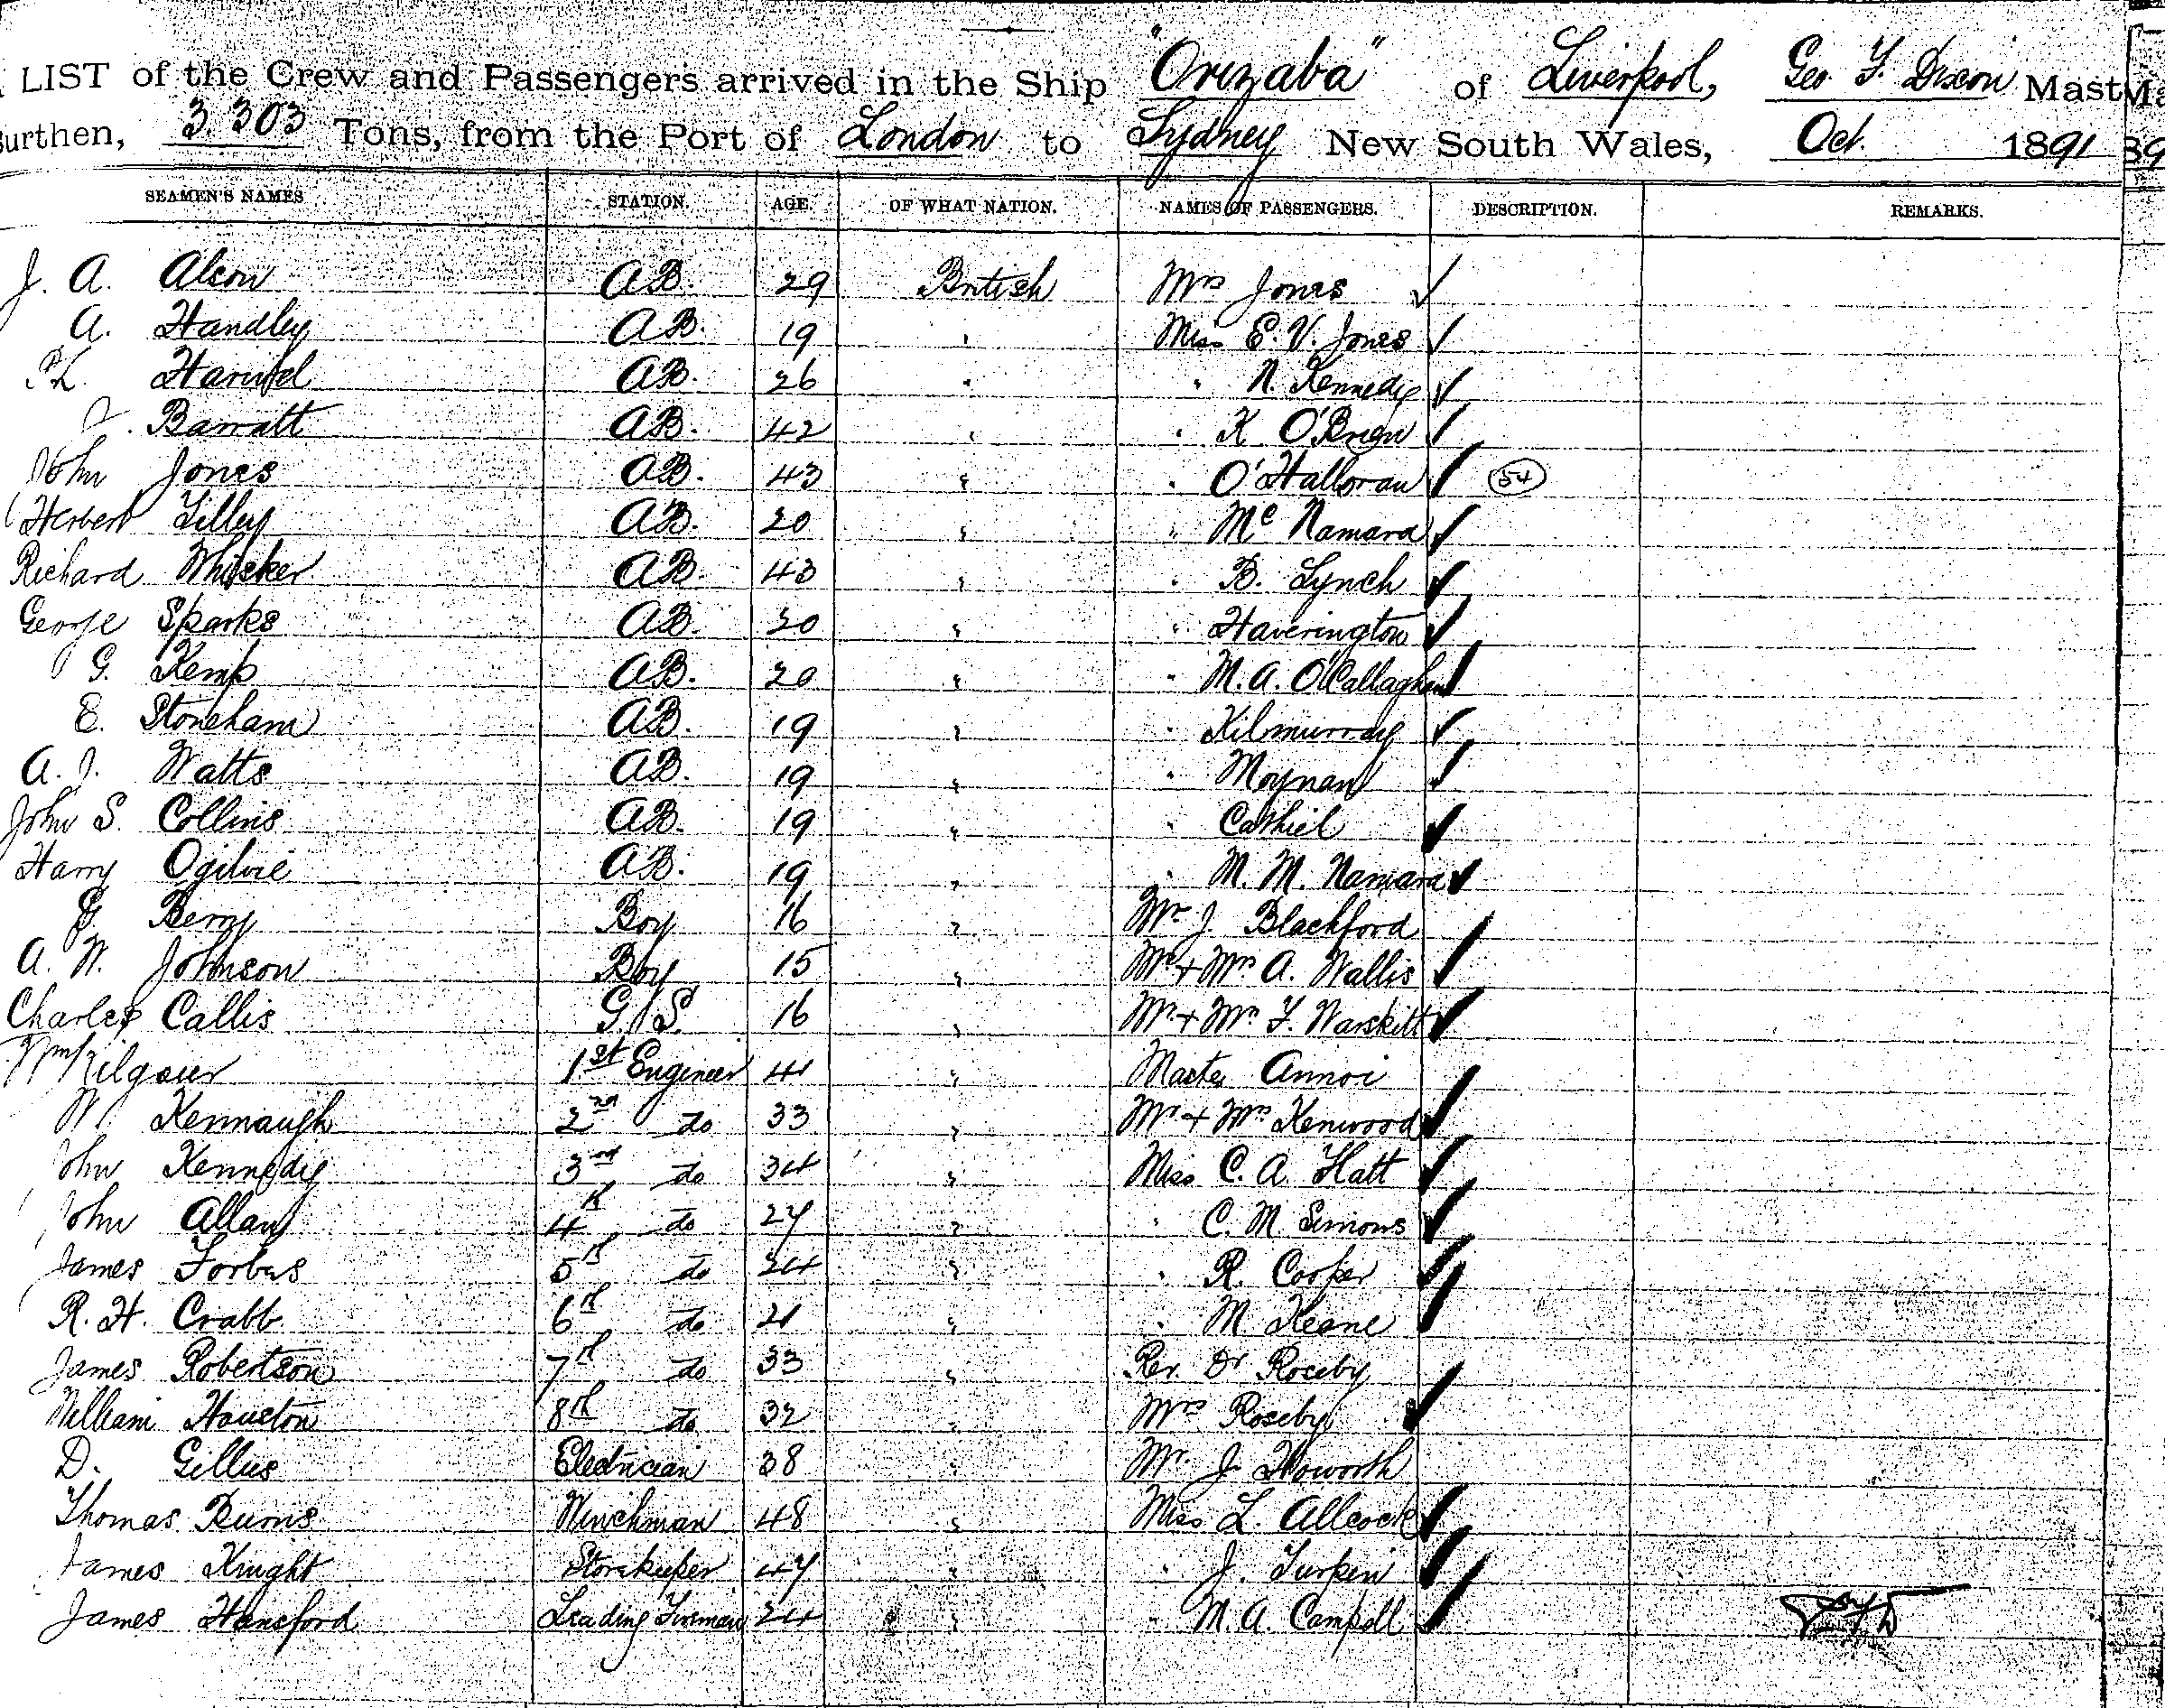 LIST of the Crew and Passengers arrived in the Ship "Orizaba" of Liverpool, Geo. F. Dixon Mast
Burthen, 3.303 Tons, from the Port of London to Sydney New South Wales, Oct. 1891
SEAMEN'S NAMES STATION. AGE. OF WHAT NATION. NAMES OF PASSENGERS. DESCRIPTION. REMARKS.
J. A. Alson AB. 29 British Mrs Jones ✓
A. Handley AB. 19 " Miss E. V. Jones ✓
AB. 26 " " N. Kennedy ✓
Barratt AB. 42 " " K O'Brien ✓
John Jones AB. 43 " " O'Halloran ✓ 54
Herbert Lilley AB. 20 " " Mc Namara ✓
Richard Whisker AB. 43 " " B. Lynch ✓
George Sparks AB. 20 " " Haverington ✓
G. Kemp AB. 20 " " M. A. O'Callaghan ✓
E. Stoneham AB. 19 " " Kilmurray ✓
A. J. Watts AB. 19 " " Moynan ✓
John S. Collins AB. 19 " " Cathiel ✓
Harry Ogilvie AB. 19 " " M. M. Namara ✓
G. Berry Boy 16 " Mr J. Blackford
A. W. Johnson Boy 15 " Mr + Mrs A. Wallis ✓
Charles Callis G. S. 16 " Mr + Mrs F. Warskitt ✓
Wm Kilgour 1st Engineer 41 " Master Annoi
W. Kennaugh 2nd do 33 " Mr + Mrs Kenwood ✓
John Kennedy 3rd do 34 " Miss C. A. Hatt ✓
John Allan 4th do 27 " " C. M. Simons ✓
James Forbes 5th do 24 " " R. Cooper ✓
R. H. Crabb 6th do 21 " " M Keane ✓
James Robertson 7th do 33 " Rev. Dr Roseby
William Houston 8th do 32 " Mrs Roseby ✓
D. Gillies Electrician 38 " Mr J. Howorth
Thomas Burns Winchman 48 " Miss L. Allcock ✓
James Knight Storekeeper 47 " " J. Turpin ✓
James Hansford Leading Fireman 24 " " M. A. Campbell ✓